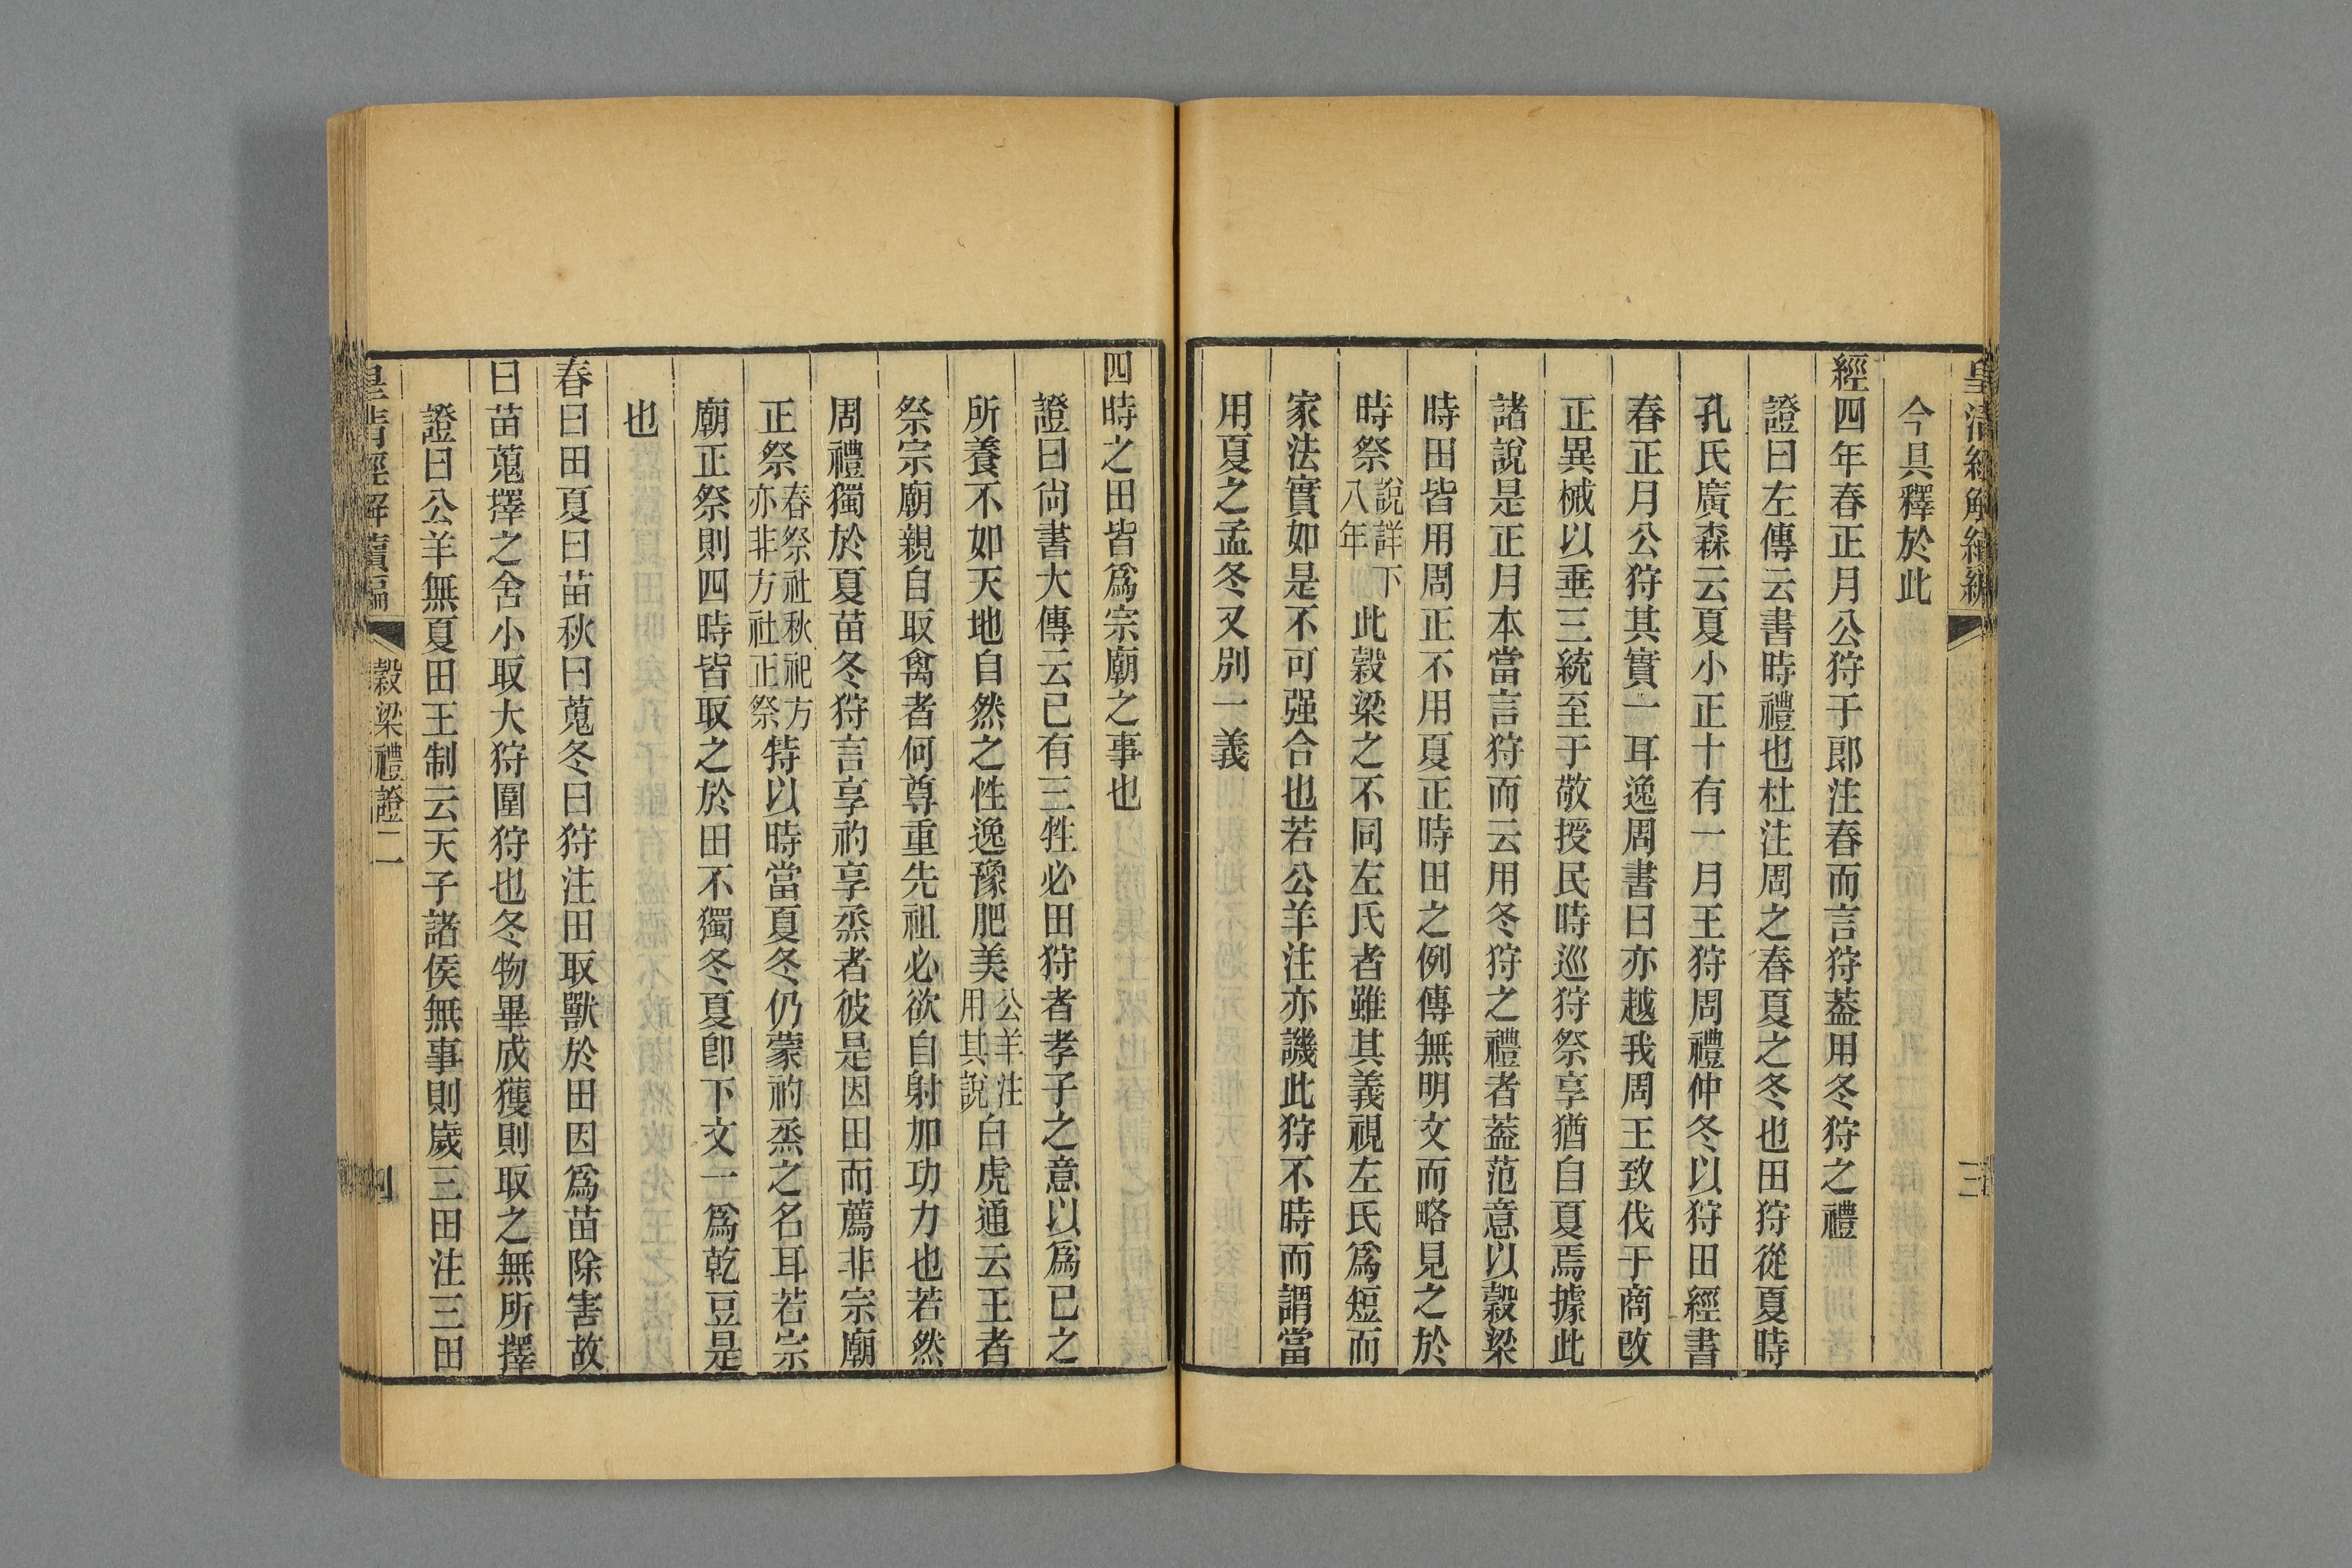 皇清經解續編
三
今具釋於此
經四年春正月公狩于郎注春而言狩葢用冬狩之禮
證曰左傳云書時禮也杜注周之春夏之冬也田狩從夏時
孔氏廣森云夏小正十有一月王狩周禮仲冬以狩田經書
春正月公狩其實一耳逸周書曰亦越我周王致伐于商改
正異械以垂三統至于敬授民時巡狩祭享猶自夏焉據此
諸說是正月本當言狩而云用冬狩之禮者葢范意以穀梁
時田皆用周正不用夏正時田之例傳無明文而略見之於
時祭說詳下八年此穀梁之不同左氏者雖其義視左氏爲短而
家法實如是不可强合也若公羊注亦譏此狩不時而謂當
用夏之孟冬又別一義
四時之田皆爲宗廟之事也
證曰尙書大傳云已有三牲必田狩者孝子之意以爲已之
所養不如天地自然之性逸豫肥美公羊注用其說白虎通云王者
祭宗廟親自取禽者何尊重先祖必欲自射加功力也若然
周禮獨於夏苗冬狩言享礿享烝者彼是因田而薦非宗廟
正祭春祭社秋祀方亦非方社正祭特以時當夏冬仍蒙礿烝之名耳若宗
廟正祭則四時皆取之於田不獨冬夏卽下文一爲乾豆是
也
春曰田夏曰苗秋曰蒐冬曰狩注田取獸於田因爲苗除害故
曰苗蒐擇之舍小取大狩圍狩也冬物畢成獲則取之無所擇
證曰公羊無夏田王制云天子諸侯無事則歲三田注三田
皇清經解續編
穀梁禮證二